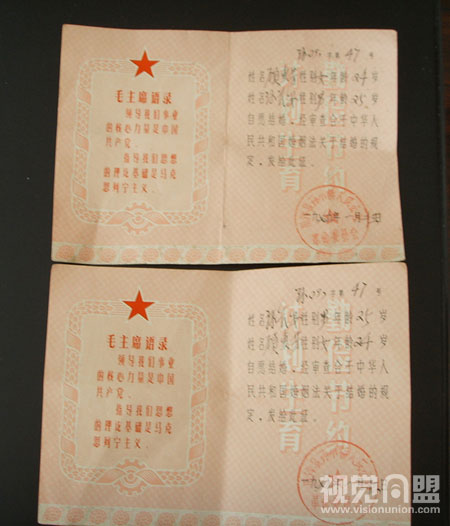 毛主席语录
领导我们事业
的核心力量是中国
共产党。
指导我们思想
的理论基础是马克
思列宁主义。
字第 47 号
姓名 性别 女 年龄 24 岁
姓名 性别 男 年龄 25 岁
自愿结婚，经审查合于中华人
民共和国婚姻法关于结婚的规
定，发给此证。
毛主席语录
领导我们事业
的核心力量是中国
共产党。
指导我们思想
的理论基础是马克
思列宁主义。
字第 47 号
姓名 性别 男 年龄 25 岁
姓名 性别 女 年龄 24 岁
自愿结婚，经审查合于中华人
民共和国婚姻法关于结婚的规
定，发给此证。
视觉同盟
www.visionunion.com